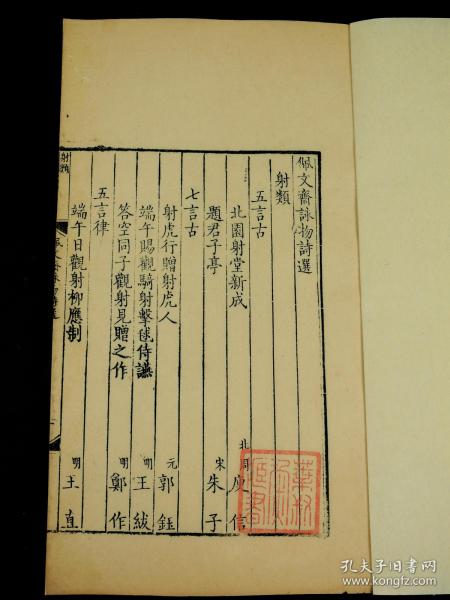 佩文齋詠物詩選
射類
五言古
北園射堂新成 北周 庾信
題君子亭 宋 朱子
七言古
射虎行贈射虎人 元 郭鈺
端午賜觀騎射擊毬侍讌 明 王紱
答空同子觀射見贈之作 明 鄭作
五言律
端午日觀射柳應制 明 王直
射類
孔夫子旧书网
www.kongfz.com